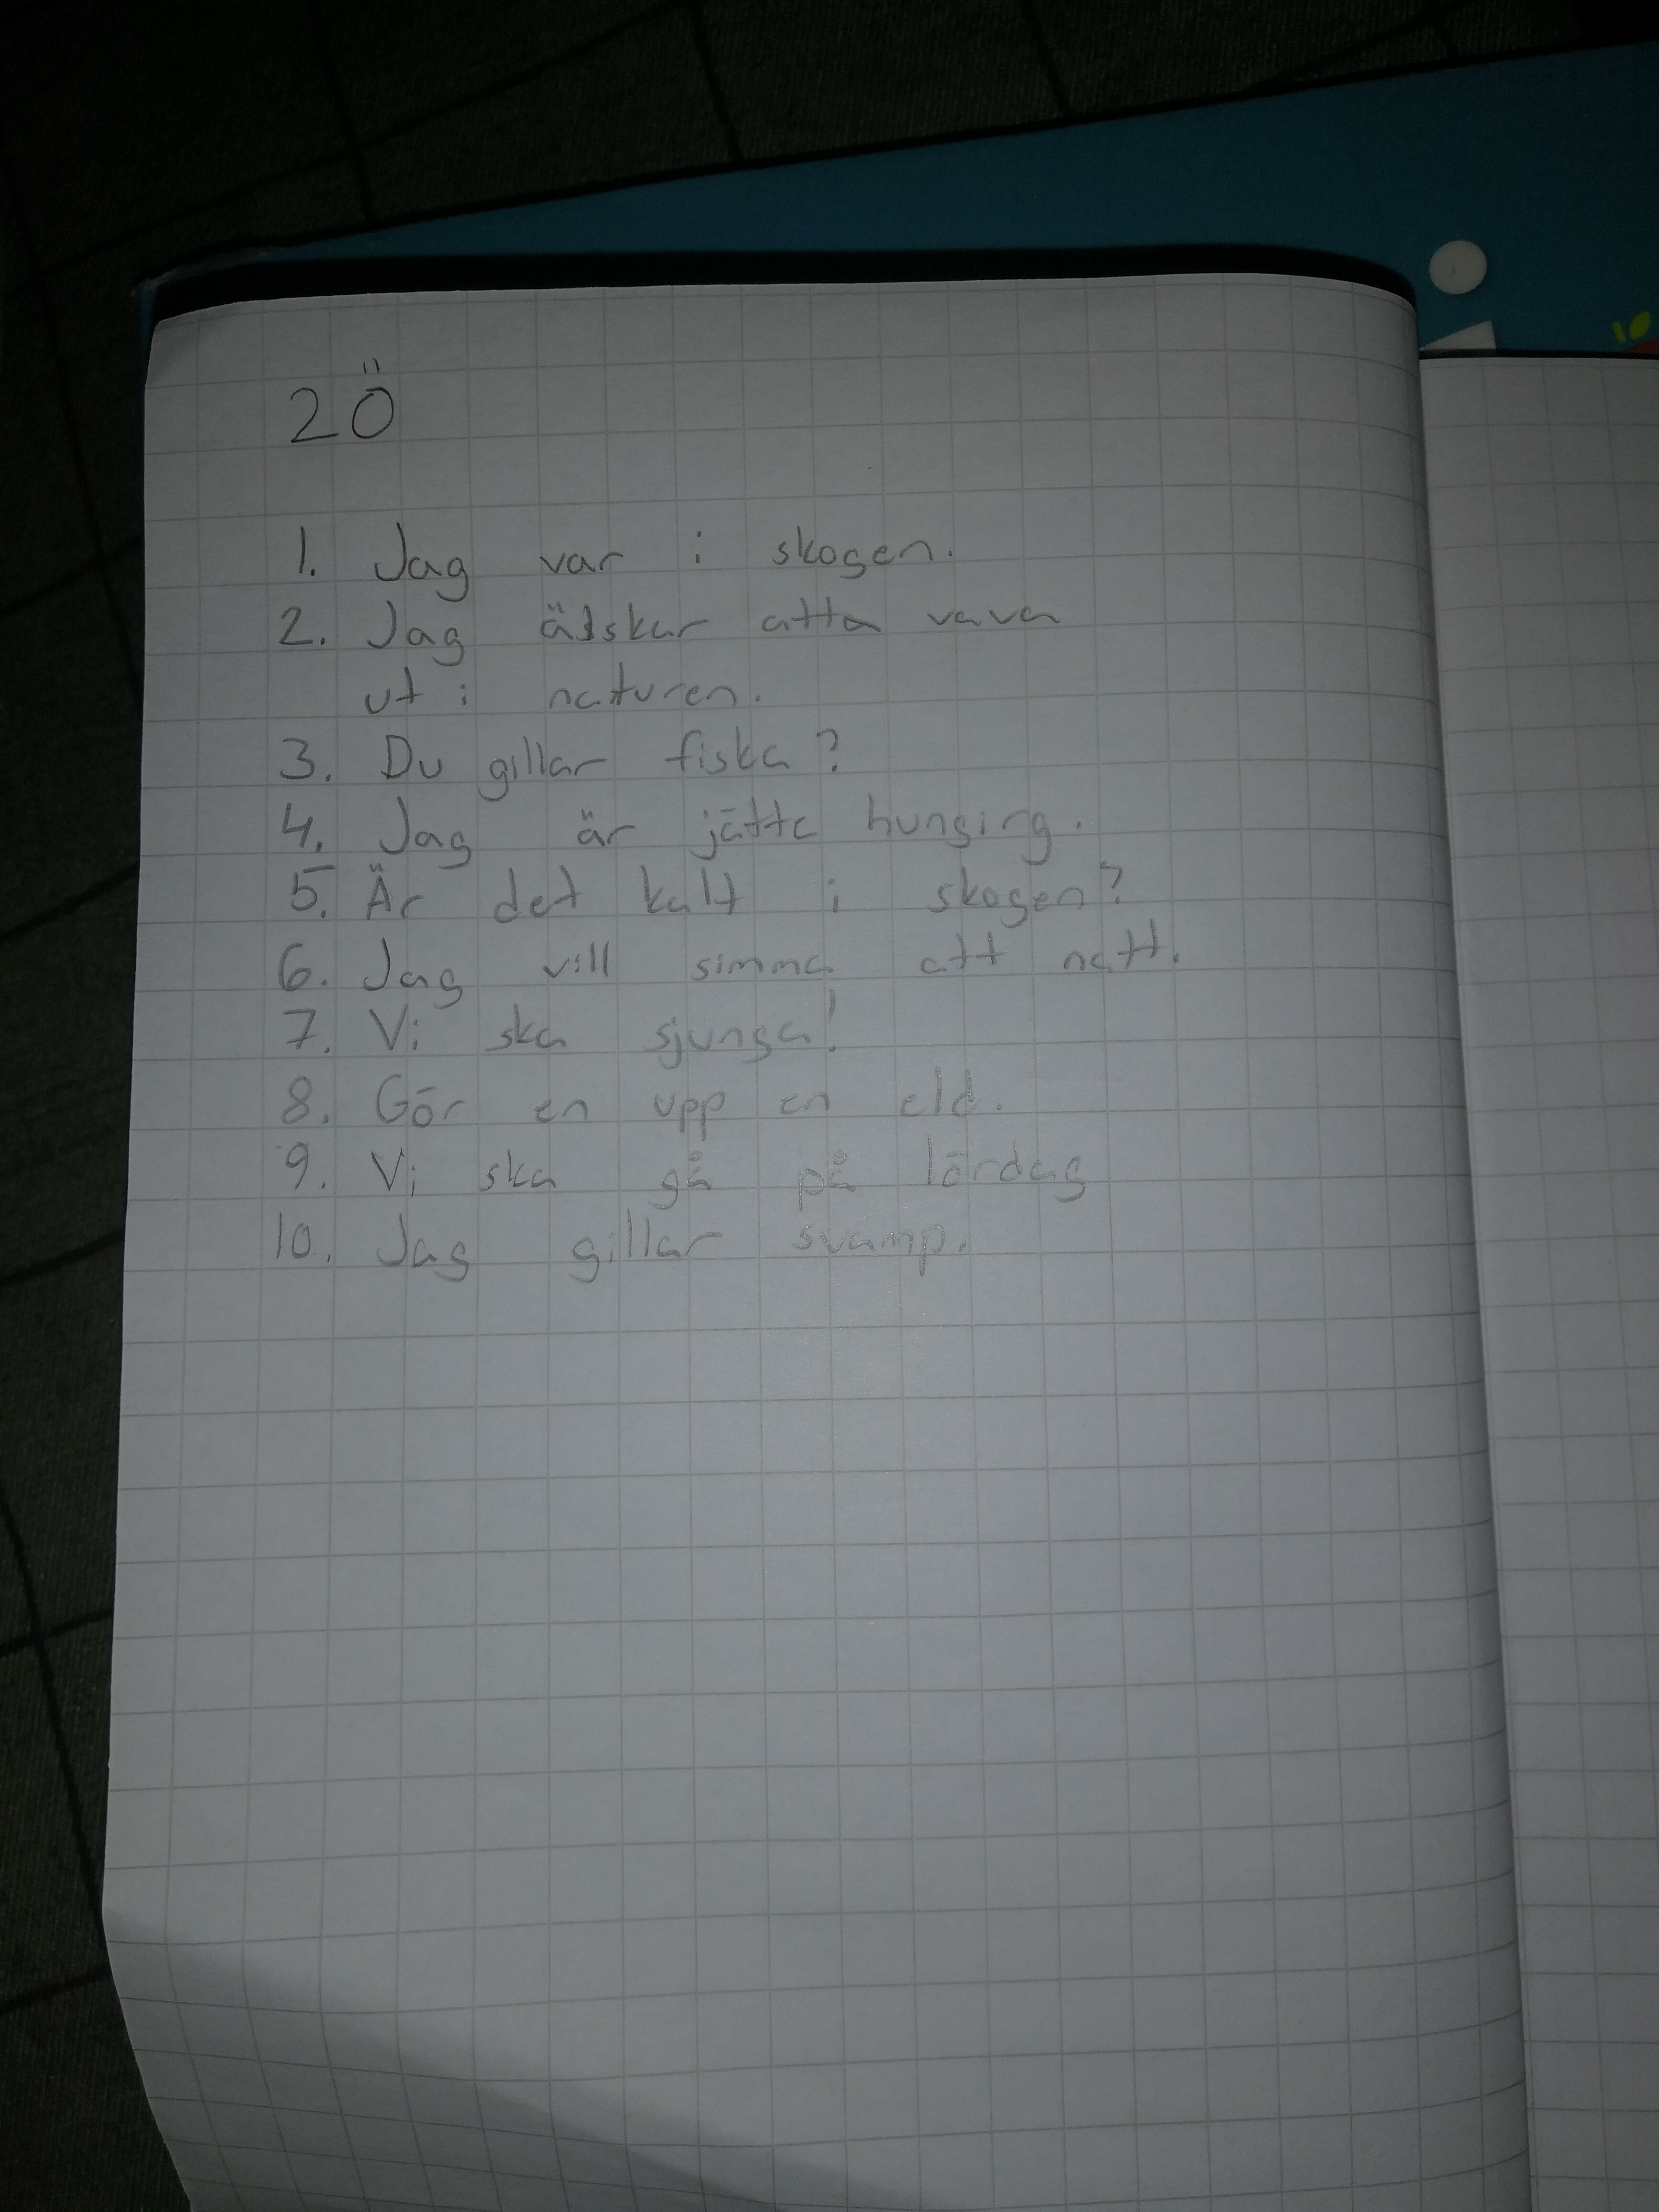 2Ö
1. Jag var i skogen.
2. Jag älskar atta vava
ut i naturen.
3. Du gillar fiska?
4. Jag är jätte hunging.
5. Är det kalt i skogen?
6. Jag vill simma att natt.
7. Vi ska sjunga!
8. Gör en upp en eld.
9. Vi ska gå på lördag
10. Jag gillar svamp.